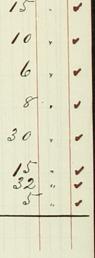 15 " ✓
10 " ✓
6 " ✓
8 " ✓
30 " ✓
15 " ✓
32 " ✓
5 " ✓